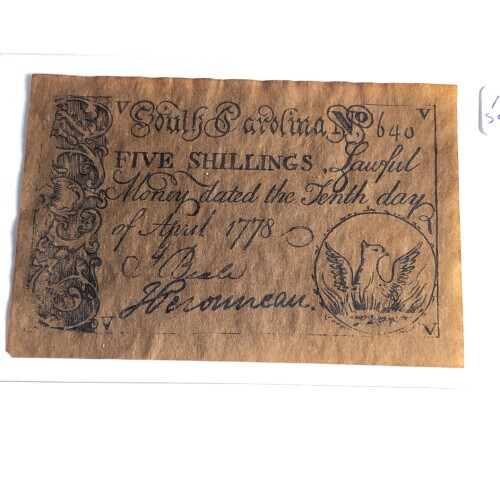 V V
South Carolina No 640
FIVE SHILLINGS, Lawful
Money dated the Tenth day
of April 1778
Beale
H Peronneau.
V V